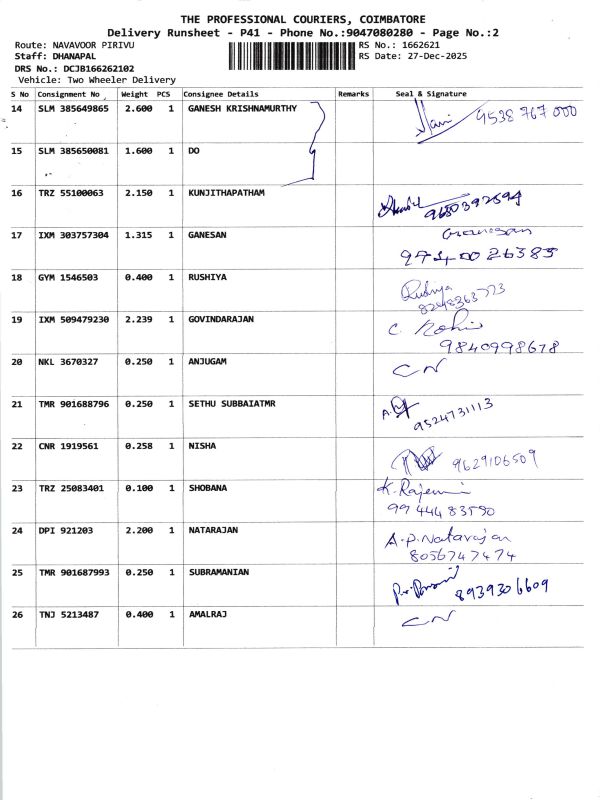 THE PROFESSIONAL COURIERS, COIMBATORE
Delivery Runsheet - P41 - Phone No.:9047080280 - Page No.:2
Route: NAVAVOOR PIRIVU RS No.: 1662621
Staff: DHANAPAL RS Date: 27-Dec-2025
DRS No.: DCJB166262102
Vehicle: Two Wheeler Delivery
S No Consignment No Weight PCS Consignee Details Remarks Seal & Signature
14 SLM 385649865 2.600 1 GANESH KRISHNAMURTHY 9538 767 000
15 SLM 385650081 1.600 1 DO
16 TRZ 55100063 2.150 1 KUNJITHAPATHAM
17 IXM 303757304 1.315 1 GANESAN
18 GYM 1546503 0.400 1 RUSHIYA 8248363773
19 IXM 509479230 2.239 1 GOVINDARAJAN C. Rohini
9840998678
20 NKL 3670327 0.250 1 ANJUGAM CN
21 TMR 901688796 0.250 1 SETHU SUBBAIATMR 9524731113
22 CNR 1919561 0.258 1 NISHA 9629106509
23 TRZ 25083401 0.100 1 SHOBANA
99 444 83590
24 DPI 921203 2.200 1 NATARAJAN A.P.Natarajan
8056747474
25 TMR 901687993 0.250 1 SUBRAMANIAN 8939306609
26 TNJ 5213487 0.400 1 AMALRAJ CN